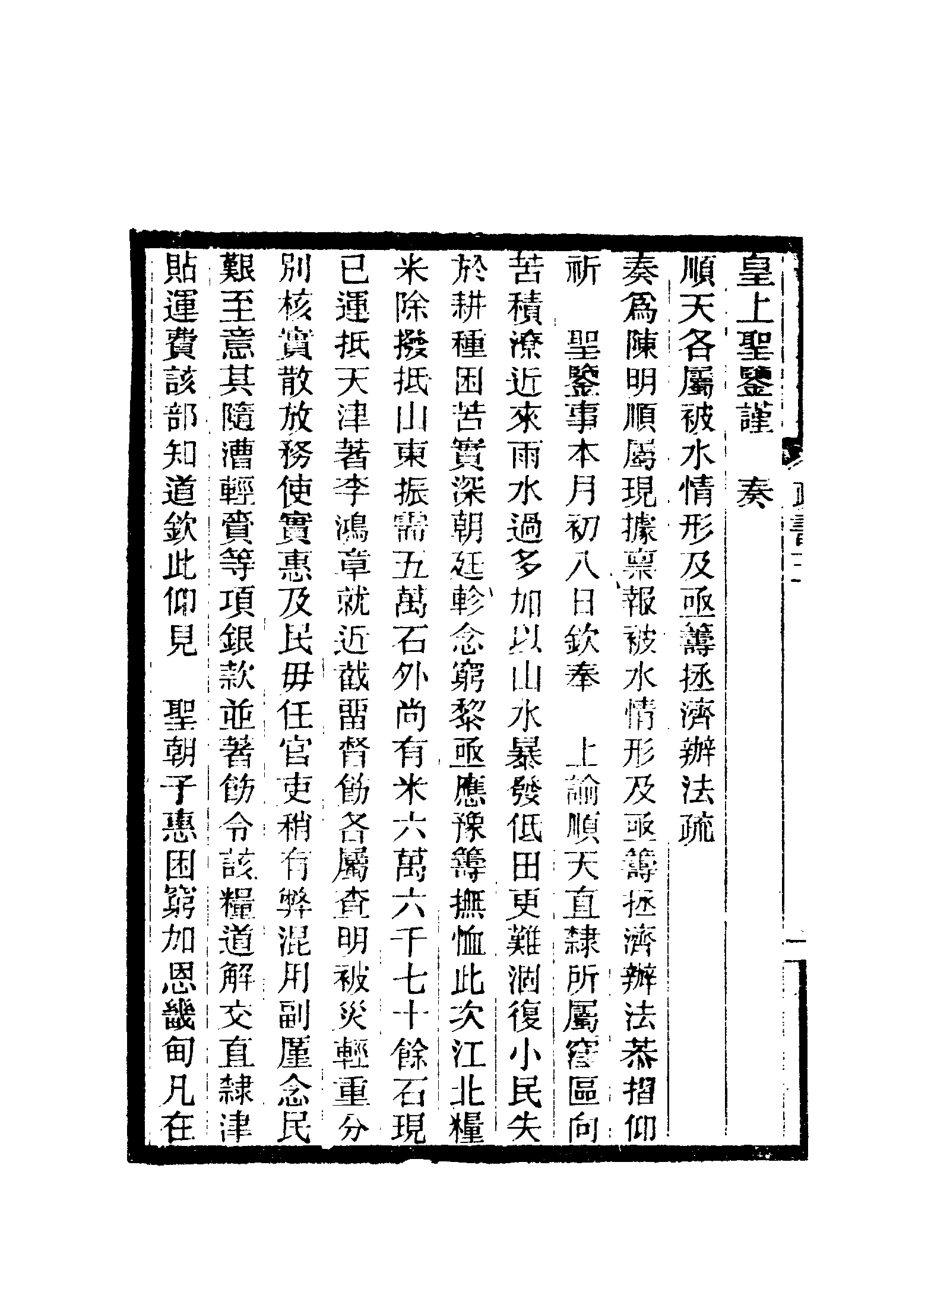 皇上聖鑒謹　奏
順天各屬被水情形及亟籌拯濟辦法疏
奏爲陳明順屬現據稟報被水情形及亟籌拯濟辦法恭摺仰
祈　聖鑒事本月初八日欽奉　上諭順天直隸所屬窪區向
苦積潦近來雨水過多加以山水暴發低田更難涸復小民失
於耕種困苦實深朝廷軫念窮黎亟應豫籌撫恤此次江北糧
米除撥抵山東振需五萬石外尚有米六萬六千七十餘石現
已運抵天津著李鴻章就近截畱督飭各屬查明被災輕重分
別核實散放務使實惠及民毋任官吏稍有弊混用副廑念民
艱至意其隨漕輕賫等項銀款並著飭令該糧道解交直隸津
貼運費該部知道欽此仰見　聖朝子惠困窮加恩畿甸凡在